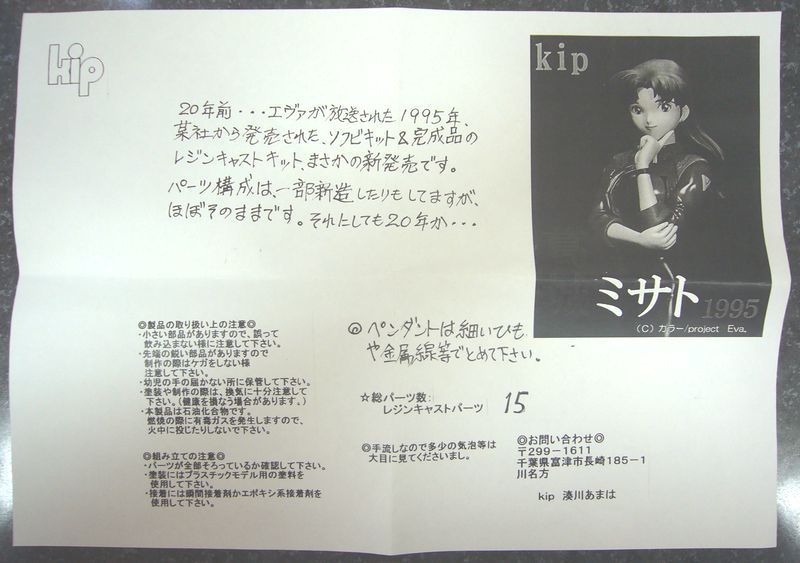 kip
20年前・・・エヴァが放送された1995年、
某社から発売された、ソフビキット&完成品の
レジンキャストキット、まさかの新発売です。
パーツ構成は、一部新造したりもしてますが、
ほぼそのままです。それにしても20年か・・・
kip
ミサト 1995
(C) カラー/project Eva.
◎製品の取り扱い上の注意◎
・小さい部品がありますので、誤って
飲み込まない様に注意して下さい。
・先端の鋭い部品がありますので
制作の際はケガをしない様
注意して下さい。
・幼児の手の届かない所に保管して下さい。
・塗装や制作の際は、換気に十分注意して
下さい。(健康を損なう場合があります。)
・本製品は石油化合物です。
燃焼の際に有毒ガスを発生しますので、
火中に投じたりしないで下さい。
◎組み立ての注意◎
・パーツが全部そろっているか確認して下さい。
・塗装にはプラスチックモデル用の塗料を
使用して下さい。
・接着には瞬間接着剤かエポキシ系接着剤を
使用して下さい。
◎ペンダントは細いひも
や金属線等でとめて下さい。
☆総パーツ数:
レジンキャストパーツ 15
◎手流しなので多少の気泡等は
大目に見てくださいまし。
◎お問い合わせ◎
〒299-1611
千葉県富津市長崎185-1
川名方
kip 湊川あまは